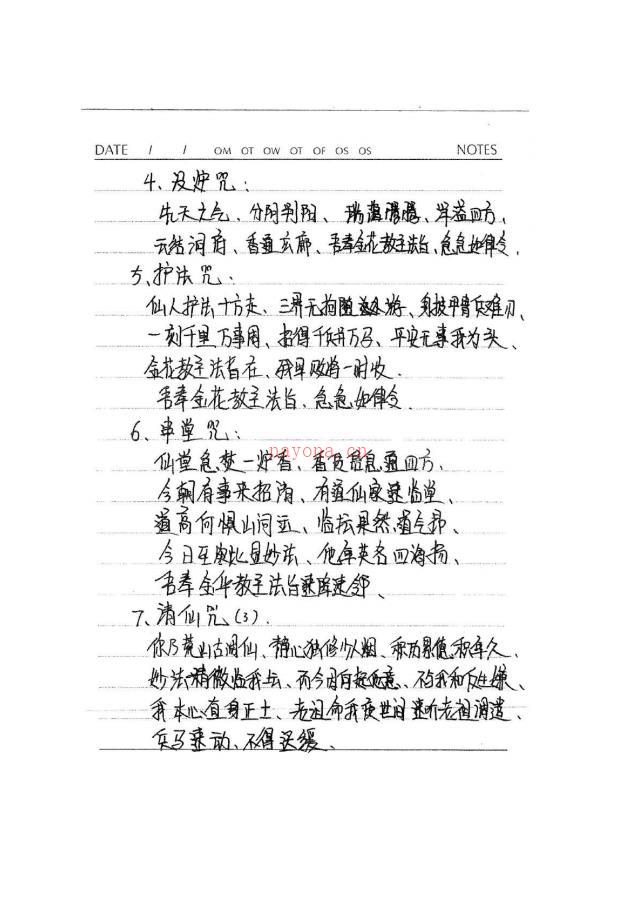 DATE / / OM OT OW OT OF OS OS NOTES
4、没炉咒:
先天之气、分阴判阳、瑞蔼腾腾、洋溢四方、
云结洞府、香通玄廊、吾奉金花教主法旨、急急如律令
5、护法咒:
仙人护法十方走、三界无拘随处游、身披甲胄兵难刃、
一刻千里万事周、招得千兵万马、平安无事我为头、
金花教主法旨在、邪早败当一时收.
吾奉金花教主法旨、急急如律令.
6、串堂咒:
nayona.cn
仙堂急焚一炉香、香气急急通四方、
今朝有事来招请、有道仙家速临堂、
道高何惧山河远、临坛果然道气昂、
今日在此显妙法、他年英名四海扬、
吾奉金华教主法旨速降速邻、
7、清仙咒(3).
你乃荒山古洞仙、静心独修少人烟、积万累德积年久、
妙法稍微临我坛、而今
我本心直身正士、老祖命我度世间速听老祖调遣、
兵马速动、不得迟缓、